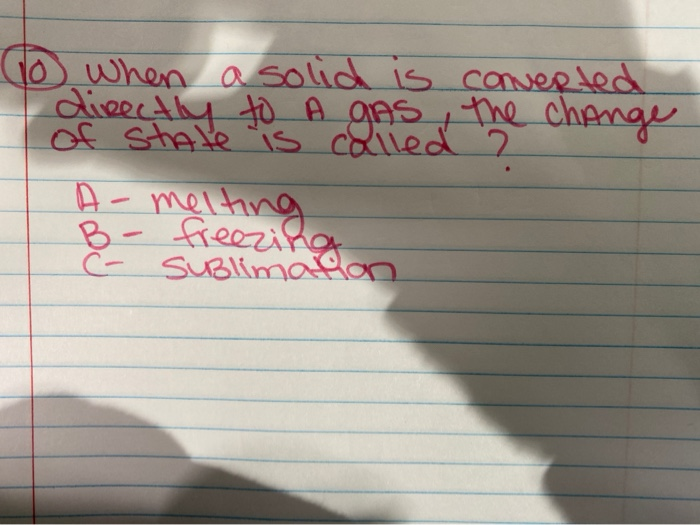 10 When a solid is converted
directly to A gAS, the chAnge
of StAte is called ?
A - melting
B - freezing
C- SuBlimation